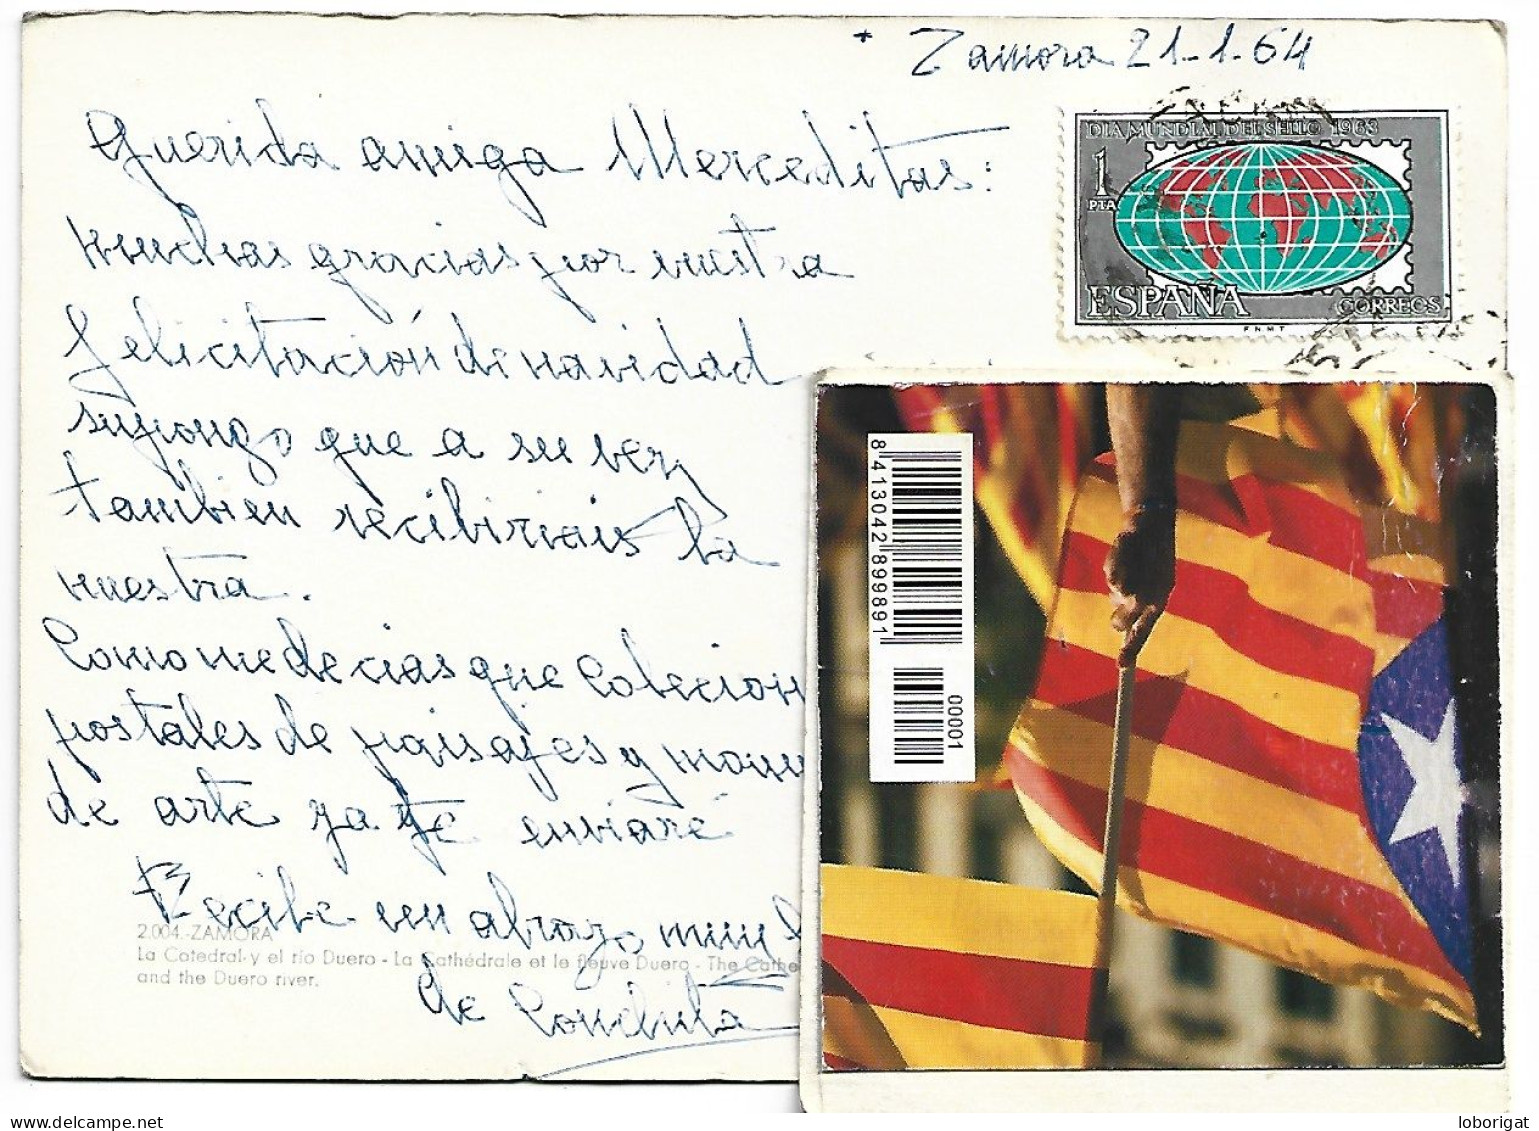 Zamora 21-1-64
DIA MUNDIAL DEL SELLO 1963
1
PTA
ESPAÑA
CORREOS
F.N.M.T
Querida amiga Merceditas:
muchas gracias por vuestra
felicitación de navidad
supongo que a su vez
tambien recibiriais la
nuestra.
Como me decias que Colecion
postales de paisajes y monu
de arte ya te enviaré
Recibe un abrazo
de Conchita
2.004.-ZAMORA
La Catedral y el río Duero - La Cathédrale et le fleuve Duero - The Cathe
and the Duero river.
8 413042 899891
00001
loborigat